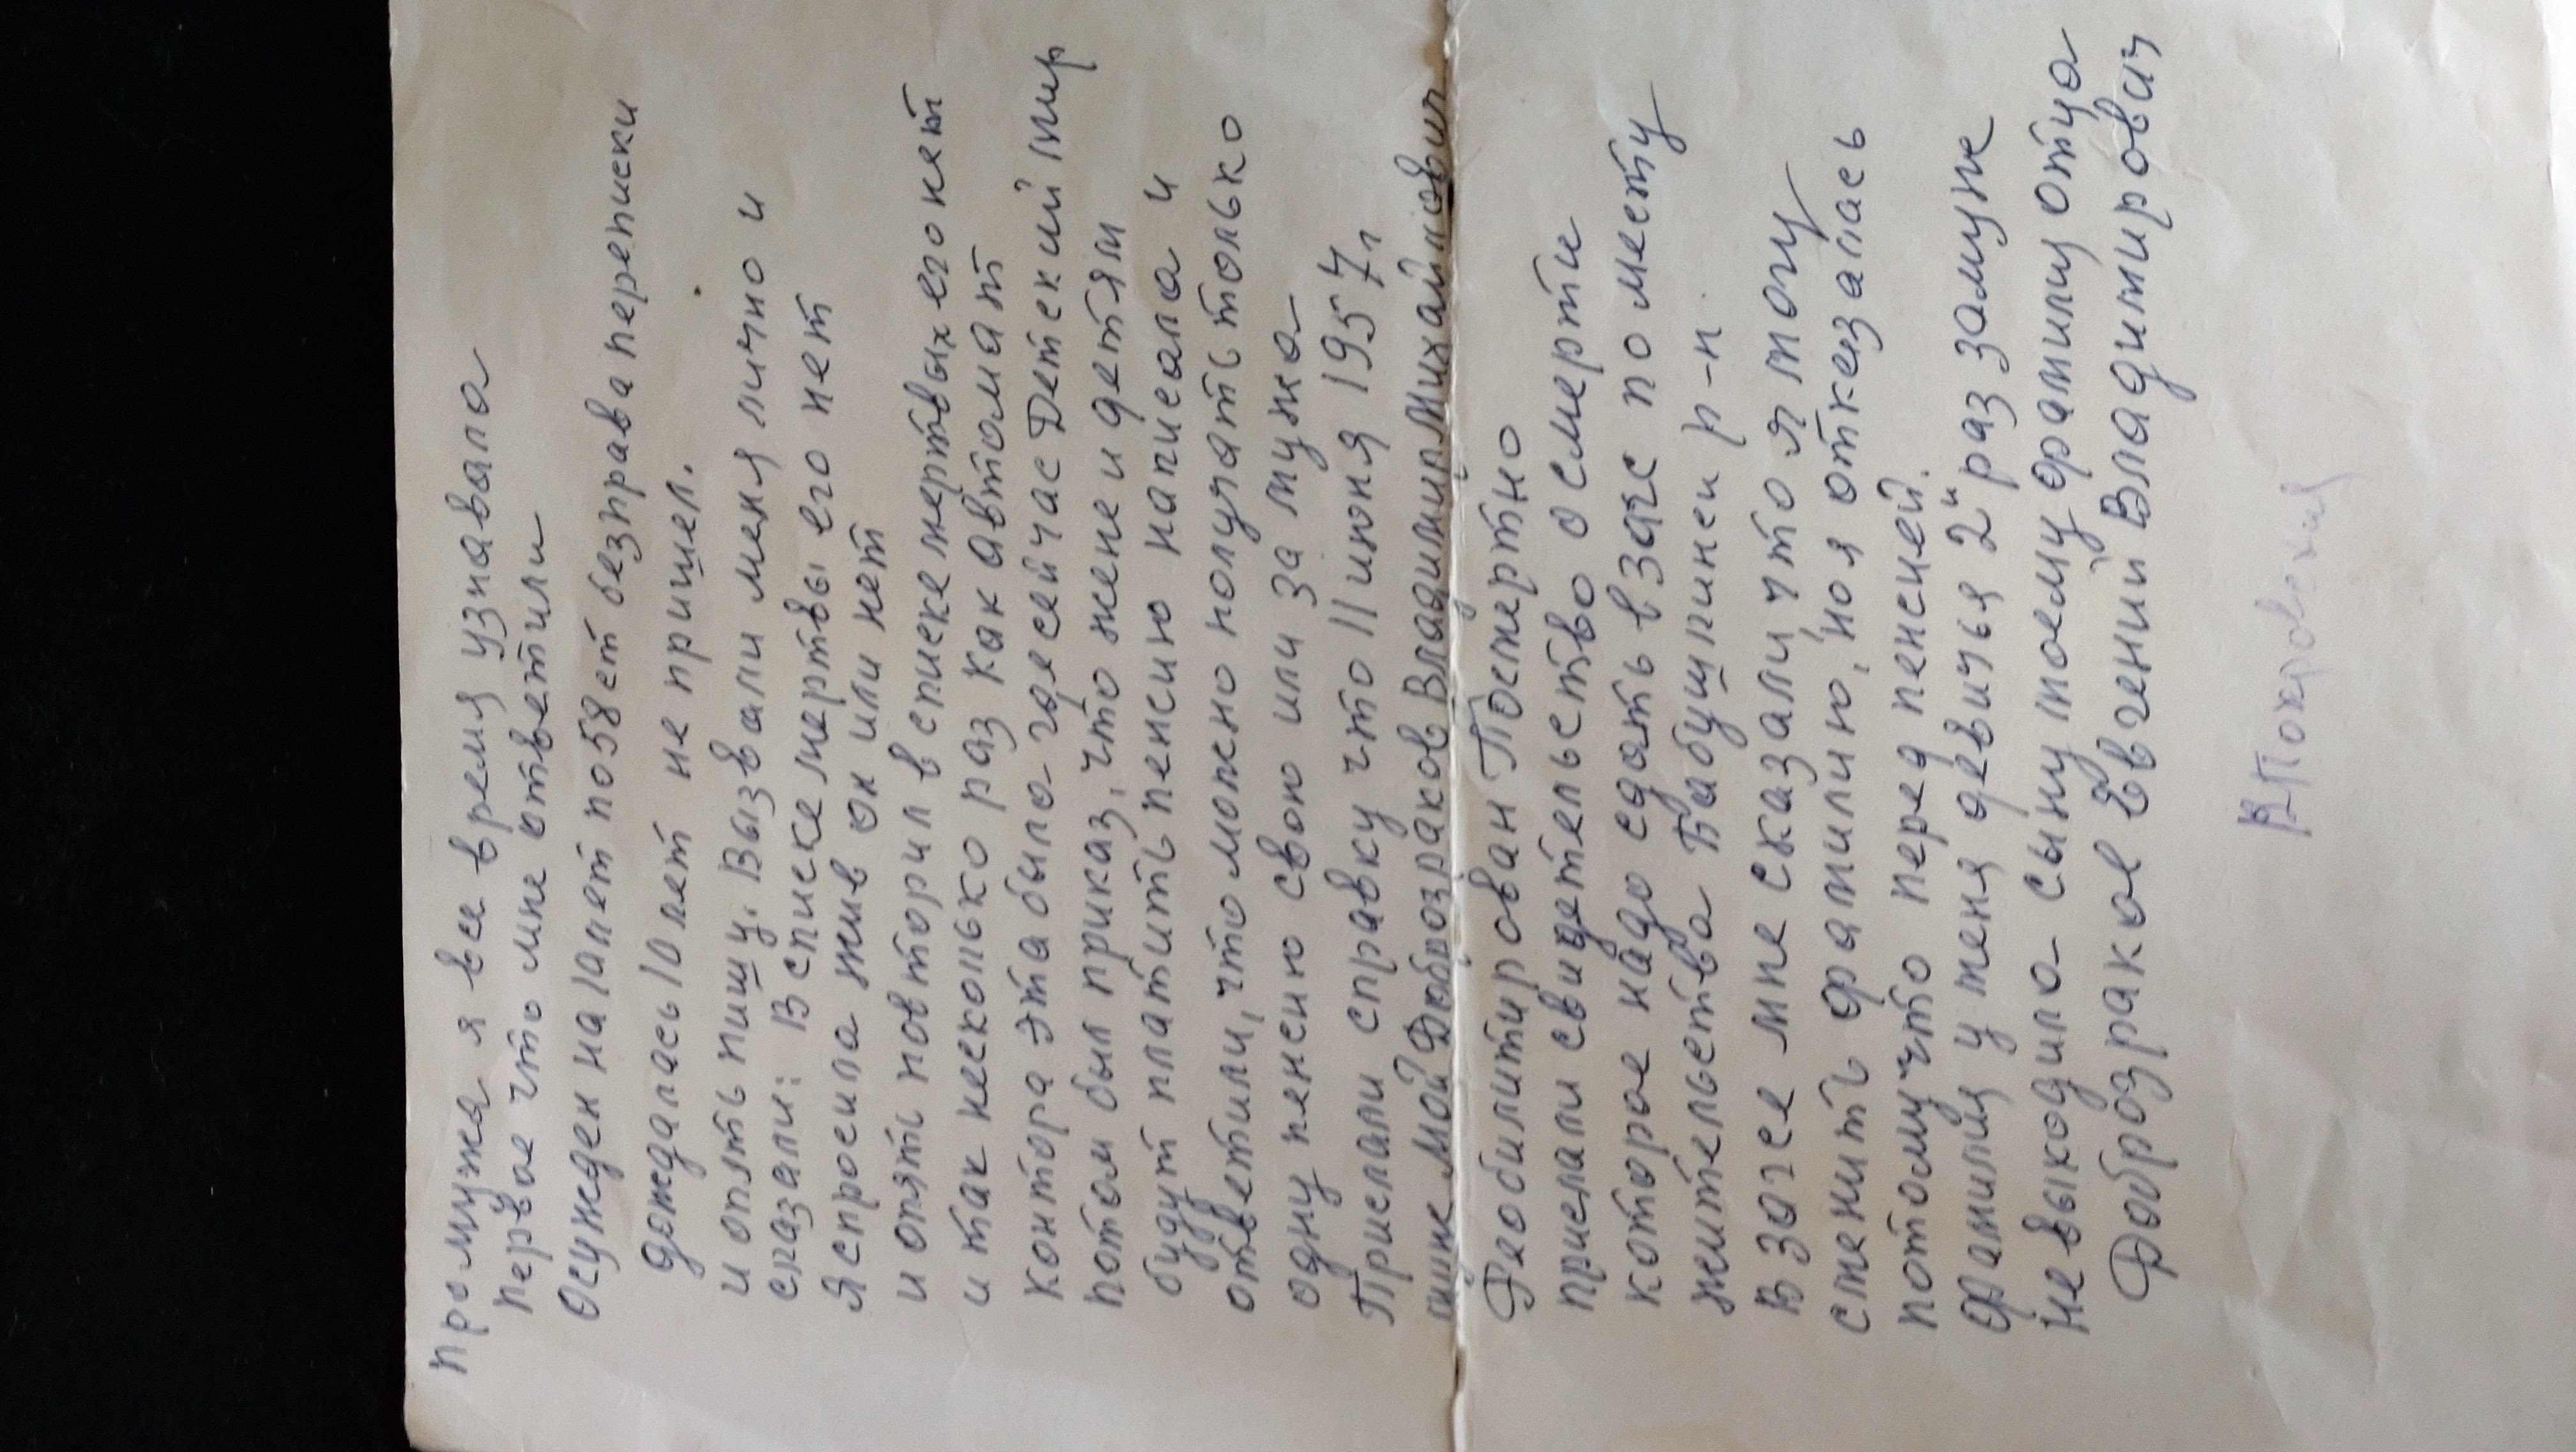 про мужа я все время узнавала
первое что мне ответили
Осужден на 10 лет по 58 ст без права переписки
дождалась 10 лет не пришел.
и опять пишу. Вызвали меня лично и
сказали: В списке мертвы его нет
Я спросила жив он или нет
и опять повторил в списке мертвых его нет
и так несколько раз как автомат
контора эта была где сейчас Детский мир
потом был приказ, что жене и детям
будут платить пенсию написала и
ответили, что можно получать только
одну пенсию свою или за мужа
Прислали справку что 11 июня 1957 г
мой Доброзраков Владимир Михайлович
Реабилитирован Посмертно
прислали свидетельство о смерти
которое надо сдать в загс по месту
жительства Бабушкинск р-н
В загсе мне сказали что я могу
сменить фамилию, но я отказалась
потому что перед пенсией.
фамилия у меня девичья 2й раз замуж
не выходила сыну моему фамилию отца
Доброзраков Евгений Владимирович
В Покровская